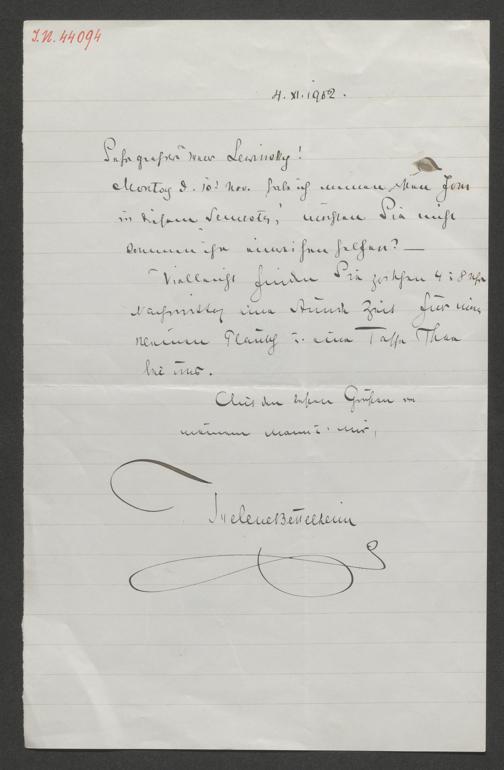 I.N. 44094
4. XI. 1902.
Sehr geehrter Herr Lewinsky!
Montag d. 10. Nov. habe ich meinen Jour
in diesem Semester, möchten Sie nicht
kommen ihn einweihen helfen? —
Vielleicht finden Sie zwischen 4 : 8 Uhr
Nachmittag eine Stunde Zeit für einen
kleinen Plausch u. eine Tasse Thee
bei uns.
Mit den besten Grüßen von
meinem Mann u. mir,
Helene Bettelheim